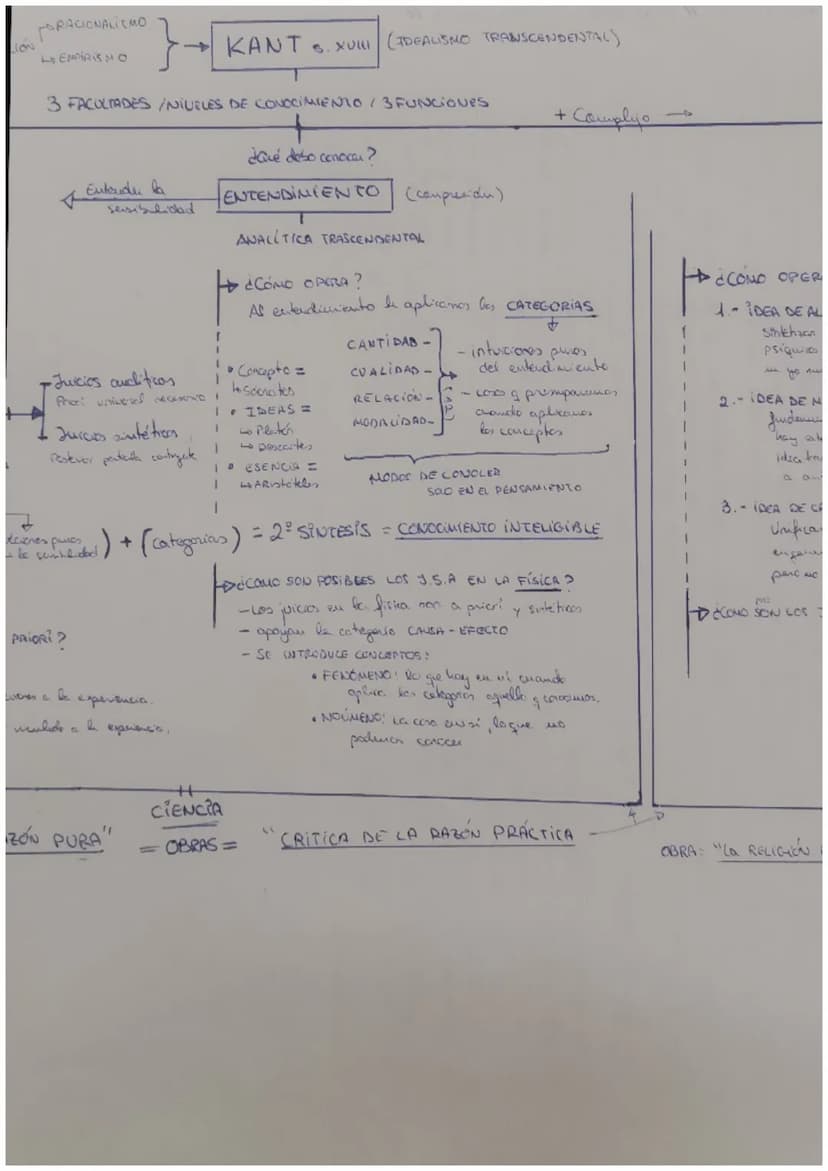 RACIONALISMO
EMPIRISMO
KANT S. XVIII (IDEALISMO TRANSCENDENTAL)
3 FACULTADES / NIVELES DE CONOCIMIENTO / 3 FUNCIONES
+ Complejo →
¿Qué debo conocer?
Entender la sensibilidad
ENTENDIMIENTO (comprensión)
ANALÍTICA TRASCENDENTAL
¿CÓMO OPERA?
Al entendimiento le aplicamos las CATEGORIAS
CANTIDAD -
CUALIDAD -
RELACIÓN -
MODALIDAD -
- intuiciones puras
del entendimiento
- cosas q presuponemos
cuando aplicamos
los conceptos
• Concepto =
↳ Sócrates
• IDEAS =
↳ Platón
↳ Descartes
• ESENCIA =
↳ Aristóteles
MODOS DE CONOCER
SOLO EN EL PENSAMIENTO
Juicios analíticos
Priori universal necesario
Juicios sintéticos
) + (categorias) = 2ª SÍNTESIS = CONOCIMIENTO INTELIGIBLE
¿COMO SON POSIBLES LOS J.S.A EN LA FÍSICA?
- Los juicios en la física son a priori y sintéticos
- apoyan la categoria CAUSA - EFECTO
- SE INTRODUCE CONCEPTOS:
• FENÓMENO: lo que hay en mí cuando
aplica las categorias aquello q conocemos.
• NOÚMENO: La cosa en sí, lo que no
podemos conocer
PRIORI?
a la experiencia.
a la experiencia.
¿CÓMO OPER
1.- IDEA DE AL
Sintetizan
psíquicos
un yo
2.- IDEA DE M
hay
idea
3.- IDEA DE
Unifica
pero no
¿CÓMO SON LOS
CIENCIA
ZÓN PURA" = OBRAS = "CRITICA DE LA RAZÓN PRÁCTICA
OBRA: "LA RELIGIÓN